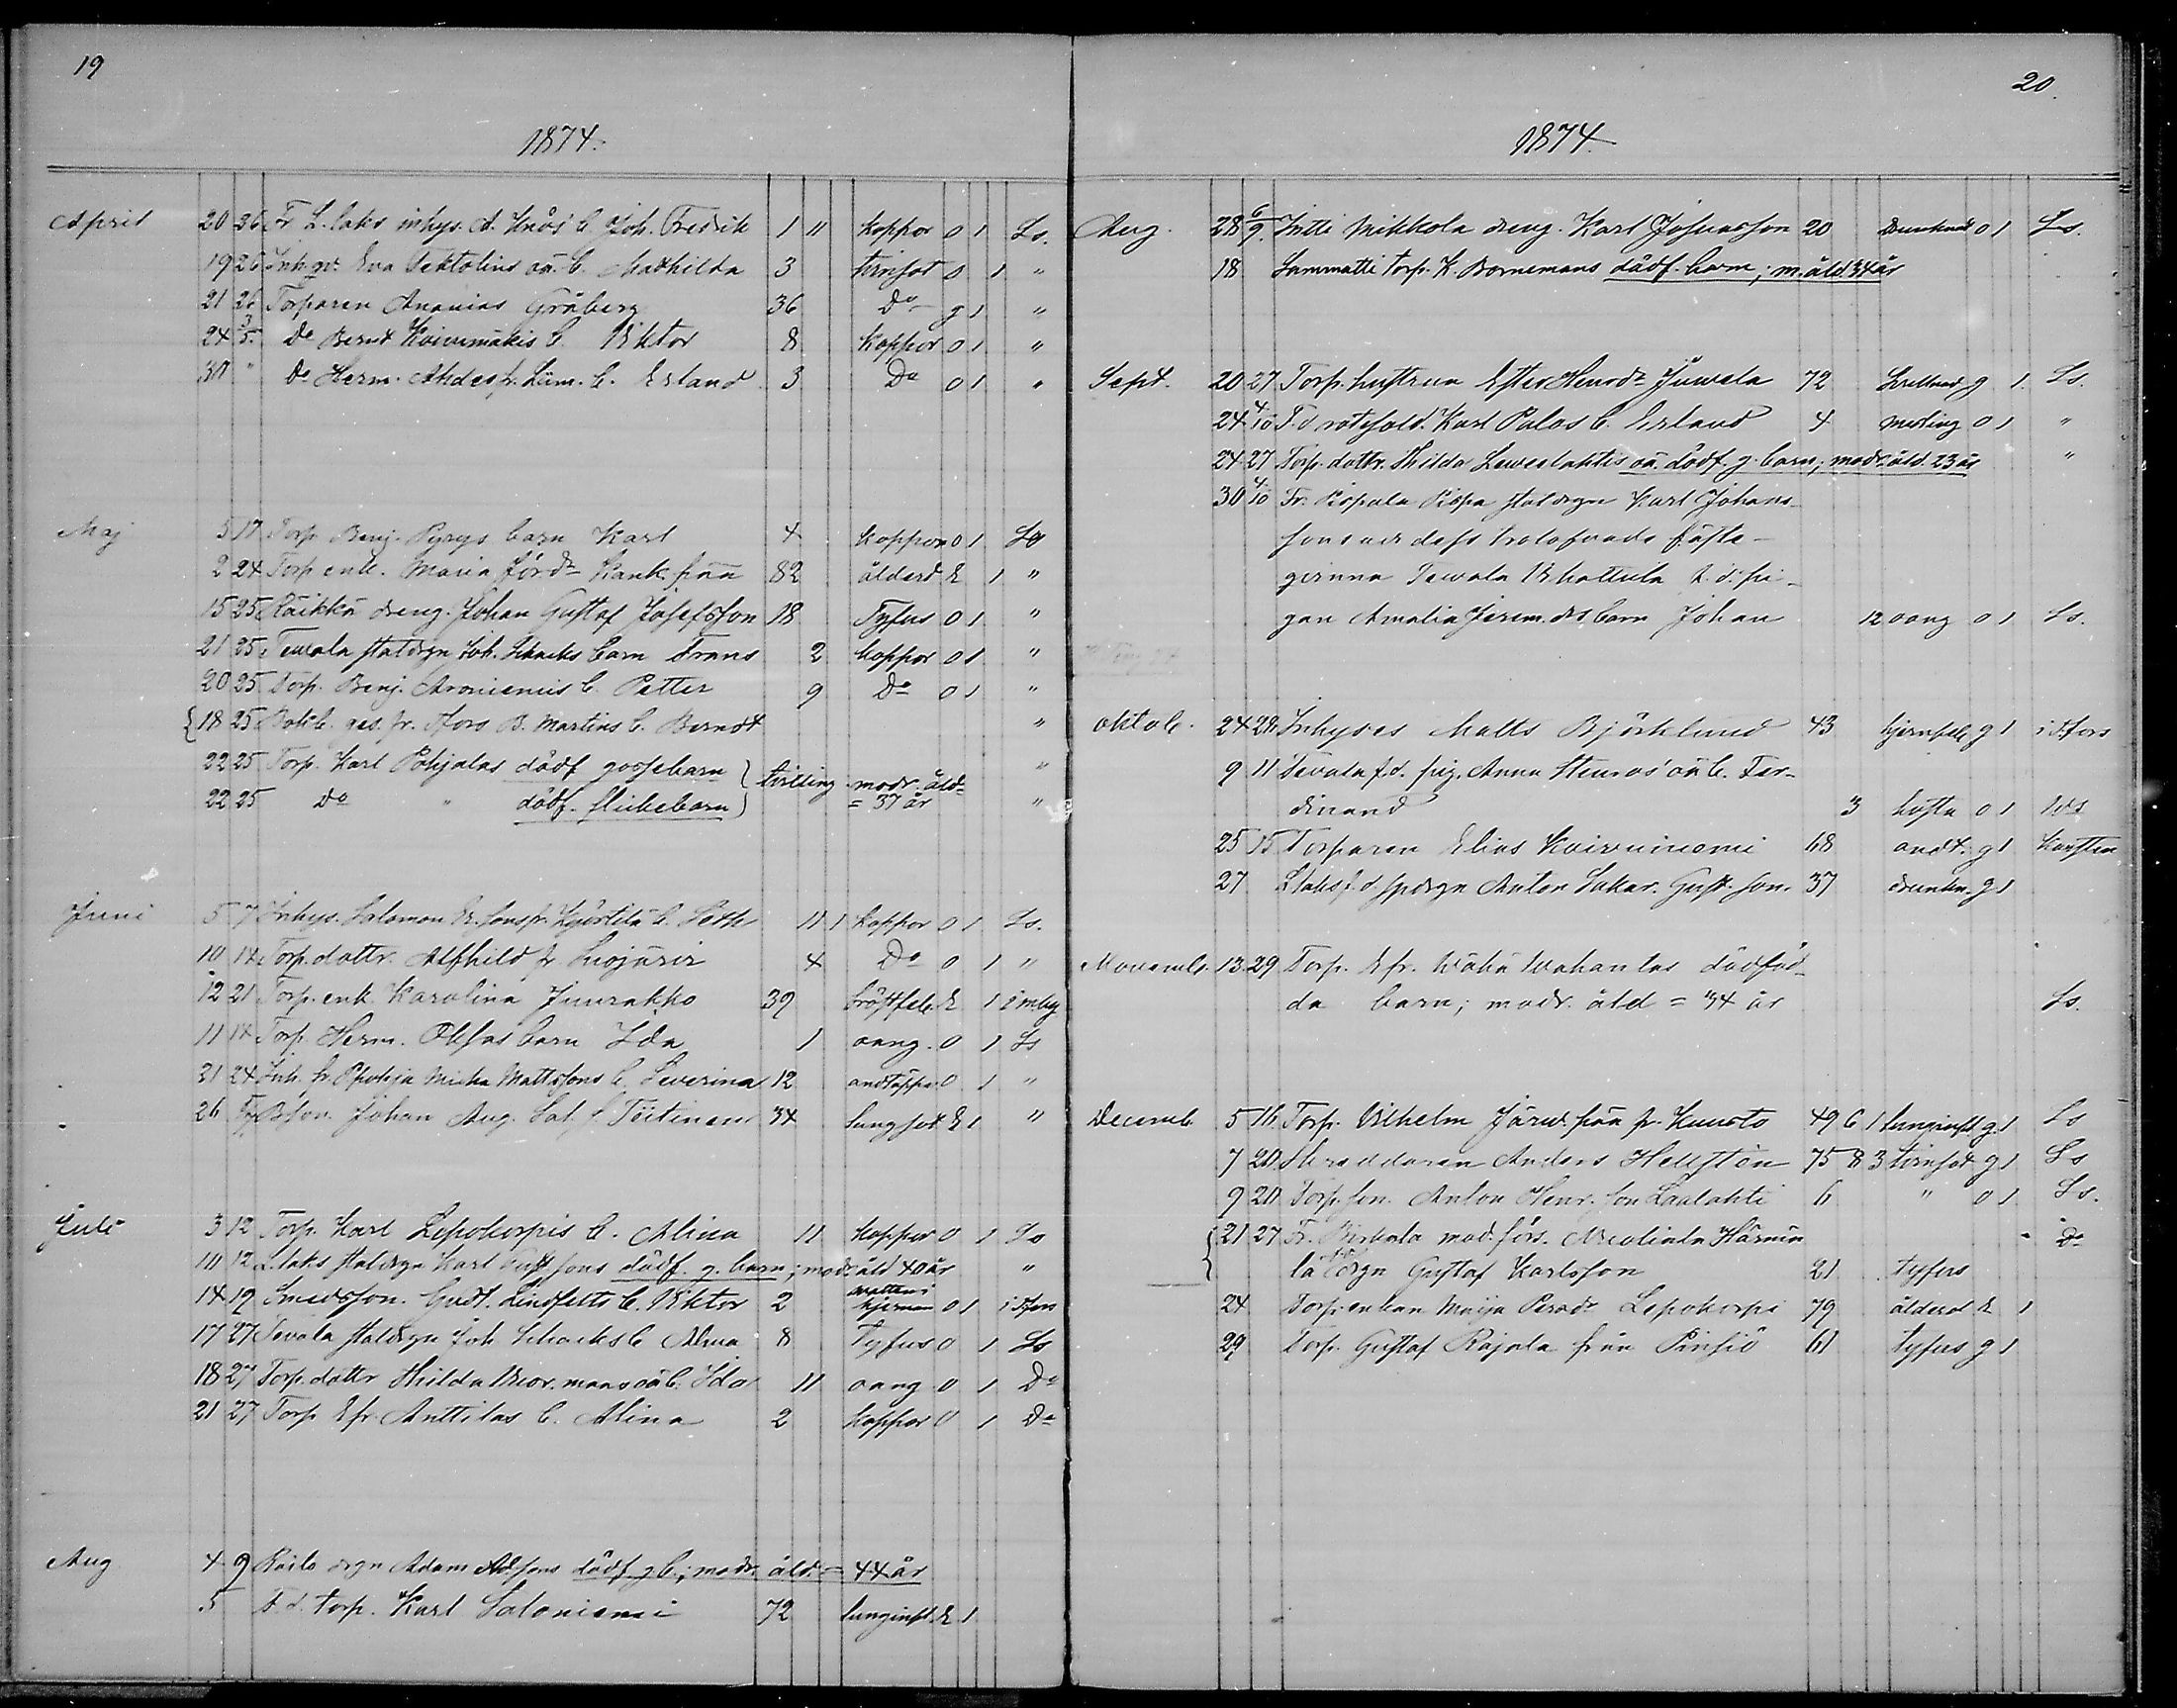 19
1874.
April 20 26 Fr L. laks inhys. A. Knös' b. Joh. Fredrik 1 " koppor o 1 Ls.
19 26 Inh. Eva Tektolius oä. b. Mathilda 3 tvinsot o 1 "
21 26 Torparen Ananias Gråberg 36 Do g 1 "
24 3/5 Do Bernd Koivumäkis b. Viktor 8 koppor o 1 "
30 " Do Herm. Ahdes fr. Lüm. b. Erland 3 Do o 1 "
Maj 5 17 Torp. Benj. Pyrys barn Karl 4 koppor o 1 Ls
2 24 Torp enk. Maria Jörd: Kank. pää 82 ålderd E 1 "
15 25 Räikkä dreng. Johan Gustaf Josefsson 18 Tyfus o 1 "
21 25 Tewala staldrgn Joh. Schacks barn Frans 2 koppor o 1 "
20 25 Torp. Benj. Aroniemis b. Petter 9 Do o 1 "
18 25 Bokb. ges. fr. Hfors B. Martins b. Berndt "
22 25 Torp. Karl Pohjalas dödf gossebarn } tvilling modr. åld "
22 25 Do " dödf. flickebarn = 37 år "
Juni 5 7 Inhys. Salomon E. sons fr. Kjörtilä b. Seth 11 1 koppor o 1 Ls.
10 14 Torp. dottr. Alfhild fr Suojärvi 4 Do o 1 "
12 21 Torp. enk. Karolina Juurakko 39 bröstfeb. E 1
11 14 Torp. Herm. Ollsas barn Ida 1 oang. o 1 Ls
21 24 Inh. fr. Ppohja Micka Mattssons b. Severina 12 andtäppa o 1 "
26 Bson. Johan Aug. Sal. s. Töitinen 34 Lungsot E 1 "
Juli 3 12 Torp. Karl Lepokorpis b. Alina 11 koppor o 1 Ls
10 12 L. laks staldrgn Karl Gust sons dödf. g. barn; mod. åld 40 år "
14 19 Smedsson. Gust. Lindfelts b. Viktor 2 vatten i hjernan o 1 i Hfors
17 27 Tevala staldrgn Joh Schacks b Alma 8 Tyfus o 1 Ls
18 27 Torp. dottr Hilda Weor. mans oä b. Ida 11 oang o 1 Do
21 27 Torp Efr Anttilas b. Alina 2 koppor o 1 Do
Aug 4 9 Railo drgn Adam Ad. sons dödf g b.; modr. åld = 44 år
5 F. d. torp. Karl Saloniemi 72 lunginfl. E 1
20
1874
Aug. 28 6/9 Intti Mikkola dreng. Karl Johansson 20 drunknad o 1 Ls.
18 Sammatti torp. K. Bornemans dödf. barn; m. åld 34 år
Sept. 20 27 Torp. hustrun Ester Henrd: Juwela 72 g 1 Ls.
24 4/10 F. d. rotesold. Karl Palos b. Erland 4 mesling o 1 "
24 27 Torp. dottr. Hilda Lewelahtis oä. dödf. g. barn; modr åld. 23 år "
30 4/10 Fr. Pispala Pispa staldrgn Karl Johans-
sons och dess trolofvade fäste-
qvinna Tewala Whattula f. d. pi-
gan Amalia Jerem. dr. barn Johan 12 oang o 1 Ls.
Oktob. 24 28 Inhyses Matts Björklund 43 hjernfeb g 1 i Hfors
9 11 Tevala f. d. pig. Anna Stenros' oä b. Fer-
dinand 3 hosta o 1 Ids
25 15 Torparen Elias Koivuniemi 68 andt. g 1
27 L. laks f. d. spdrgn Anton Sakar. Gust. son. 37 drunkn. g 1
Novemb. 13 29 Torp. Efr. Wähä Wahantas dödföd-
da barn; modr. åld = 34 år Ls.
Decemb. 5 16 Torp. Vilhelm Järw. pää fr. Kuusto 49 6 1 lunginfl g 1 Ls
7 20 Skräddaren Anders Hellstén 75 8 3 tvinsot g 1 Ls
9 20 Torp. son. Anton Henr. son Laalahti 6 " o 1 Ls.
21 27 Fr. Birkala mod. förs. Härmä
lä drgn Gustaf Karlsson 21 tyfus Do
24 Torp. enkan Maija Persd: Lepokorpi 79 ålderd E 1
29 Torp. Gustaf Rajala från Pinsiö 61 tyfus g 1